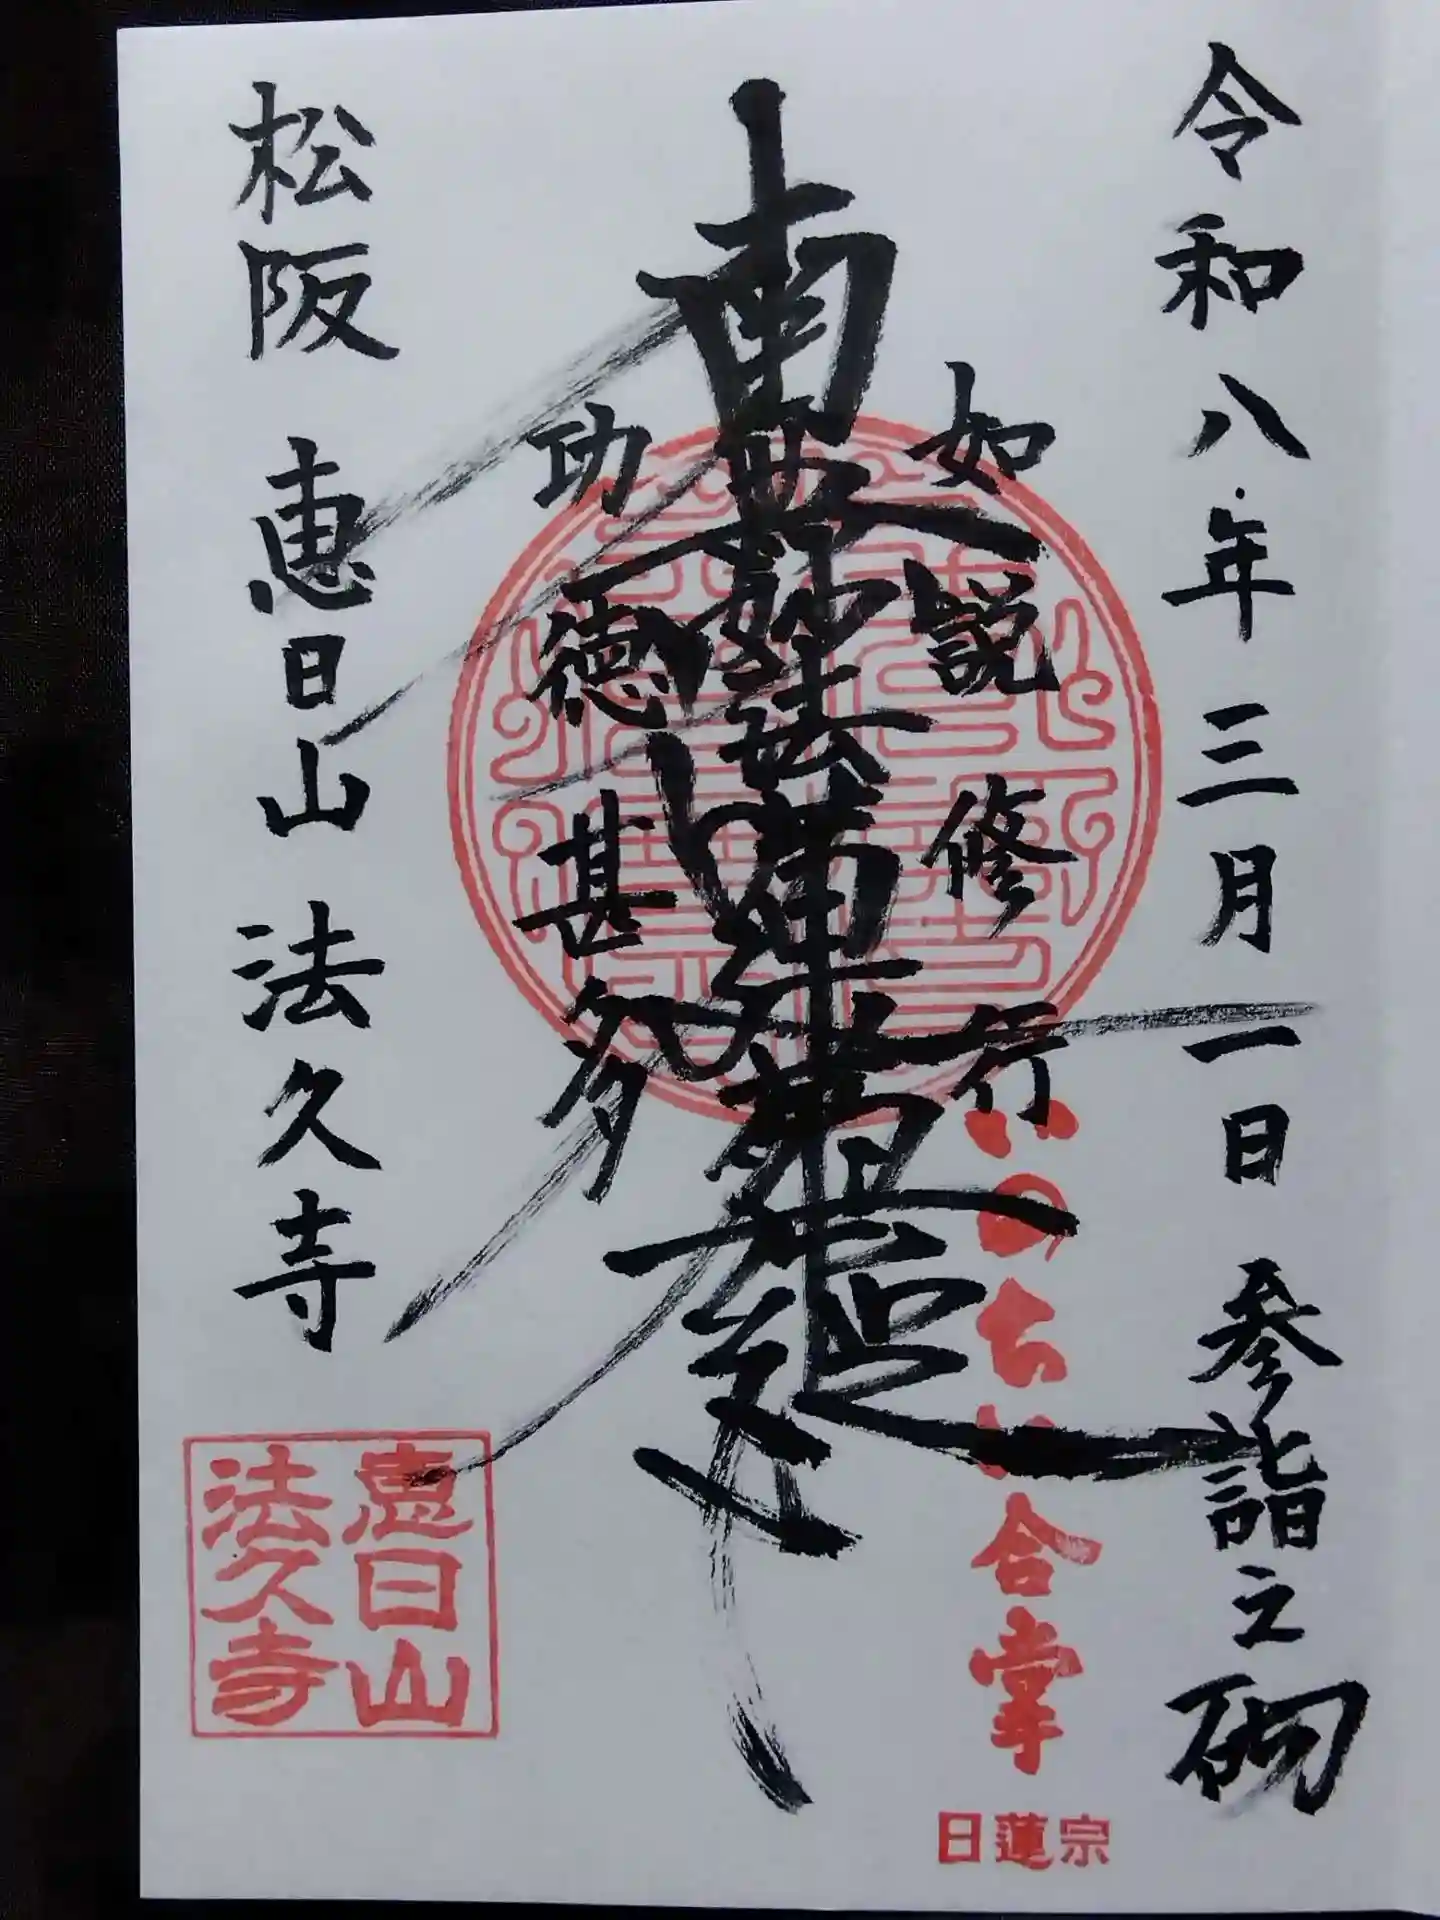 令和八年三月一日 参詣之砌
如説修行
南無妙法蓮華経
功徳甚多
松阪 恵日山 法久寺
いのちに合掌
日蓮宗
恵日山
法久寺